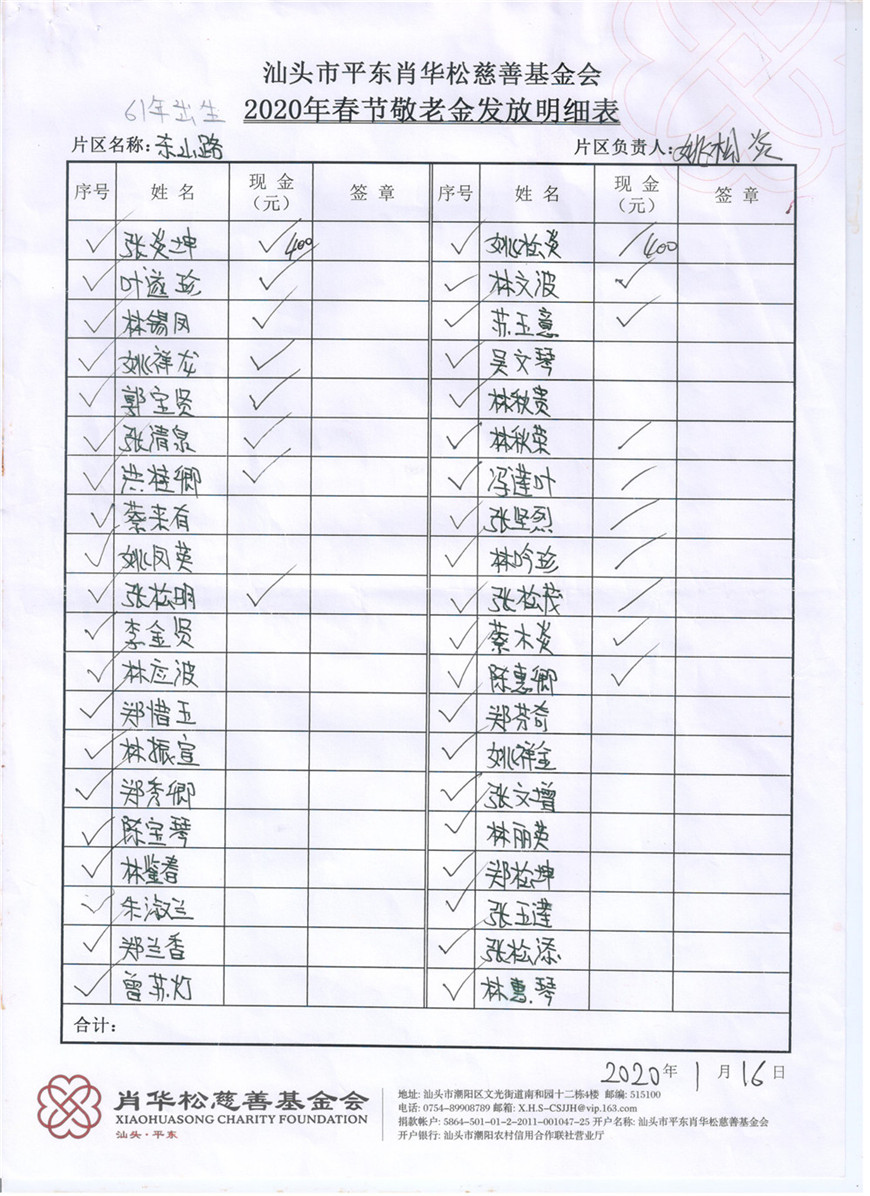 汕头市平东肖华松慈善基金会
61年出生
2020年春节敬老金发放明细表
片区名称:东山路 片区负责人:姚松炎
序号 姓名 现金（元） 签章 序号 姓名 现金（元） 签章
✓ 张炎坤 ✓400 ✓ 姚松炎 ✓400
✓ 叶遂珍 ✓ ✓ 林文波 ✓
✓ 林锡凤 ✓ ✓ 苏玉意 ✓
✓ 姚祥龙 ✓ ✓ 吴文琴
✓ 郭宝贤 ✓ ✓ 林秋贵
✓ 张清泉 ✓ ✓ 林秋荣 ✓
✓ 洪桂卿 ✓ ✓ 冯莲叶 ✓
✓ 蔡来有 ✓ 张坚烈 ✓
✓ 姚凤英 ✓ 林吟珍 ✓
✓ 张松明 ✓ ✓ 张松茂 ✓
✓ 李金贤 ✓ 蔡木炎 ✓
✓ 林应波 ✓ 陈惠卿 ✓
✓ 郑惜玉 ✓ 郑芬奇
✓ 林振宣 ✓ 姚祥金
✓ 郑秀卿 ✓ 张文增
✓ 陈宝琴 ✓ 林丽英
✓ 林鉴春 ✓ 郑松坤
✓ 朱淑兰 ✓ 张玉莲
✓ 郑兰香 ✓ 张松添
✓ 曾苏灯 ✓ 林惠琴
合计:
2020年1月16日
肖华松慈善基金会
XIAOHUASONG CHARITY FOUNDATION
汕头·平东
地址: 汕头市潮阳区文光街道南和园十二栋4楼 邮编: 515100
电话: 0754-89908789 邮箱: X.H.S-CSJJH@vip.163.com
捐款帐户: 5864-501-01-2-2011-001047-25 开户名称: 汕头市平东肖华松慈善基金会
开户银行: 汕头市潮阳农村信用合作联社营业厅